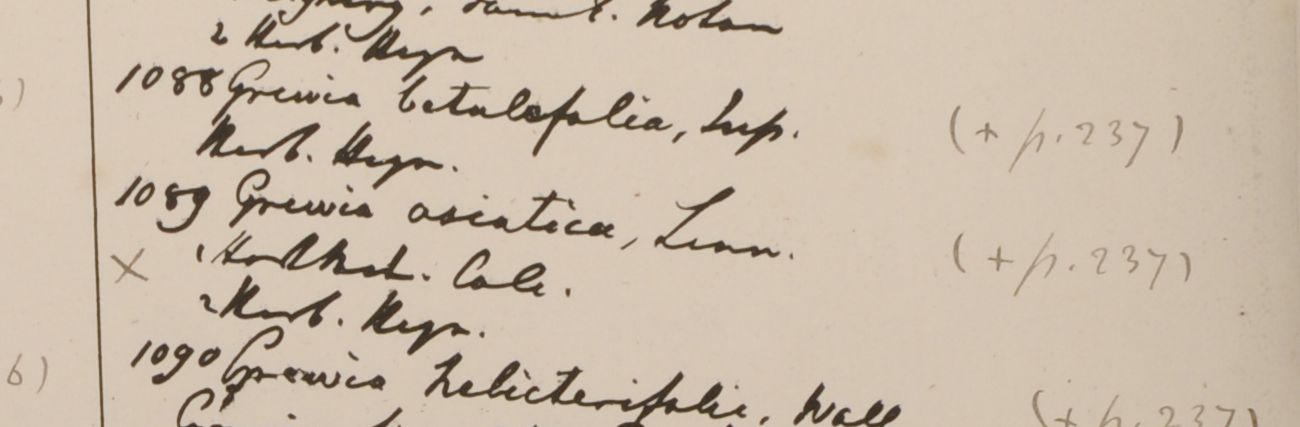 Nolan
2 Herb. Heyn
1088 Grewia betulæfolia, Juss. (+ p. 237)
Herb. Heyn.
1089 Grewia asiatica, Linn. (+ p. 237)
× 1 Hort. Bot. Calc.
2 Herb. Heyn.
6) 1090 Grewia helicterifolia, Wall (+ p. 237)